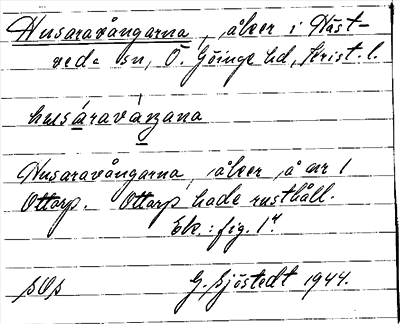 Husaravångarna, åker i Häst-
veda sn, Ö. Göinge hd, Krist. l.
husáravánana
Husaravångarna, åker å nr 1
Ottarp. Ottarp hade rusthåll.
Ek.: fig. 1
G. Sjöstedt 1944.